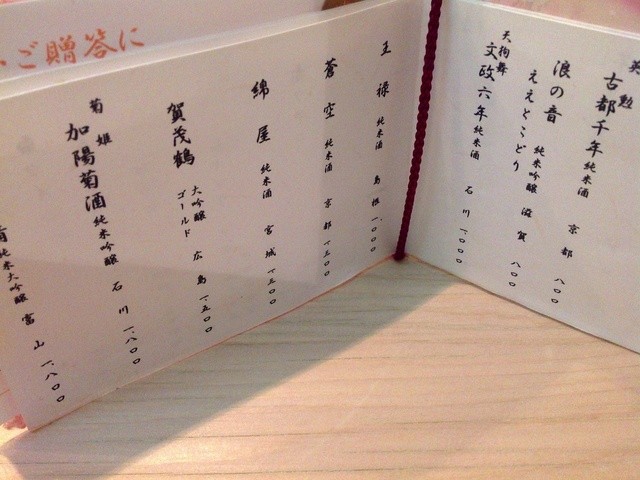 英勲
古都千年 純米酒 京都 八〇〇
浪の音
ええとこどり 純米吟醸 滋賀 八〇〇
天狗舞
文政六年 純米酒 石川 一、〇〇〇
王禄 純米酒 島根 一、〇〇〇
蒼空 純米酒 京都 一、三〇〇
綿屋 純米酒 宮城 一、三〇〇
賀茂鶴 大吟醸
ゴールド 広島 一、五〇〇
菊姫
加陽菊酒 純米吟醸 石川 一、八〇〇
純米大吟醸 富山 一、八〇〇
ご贈答に